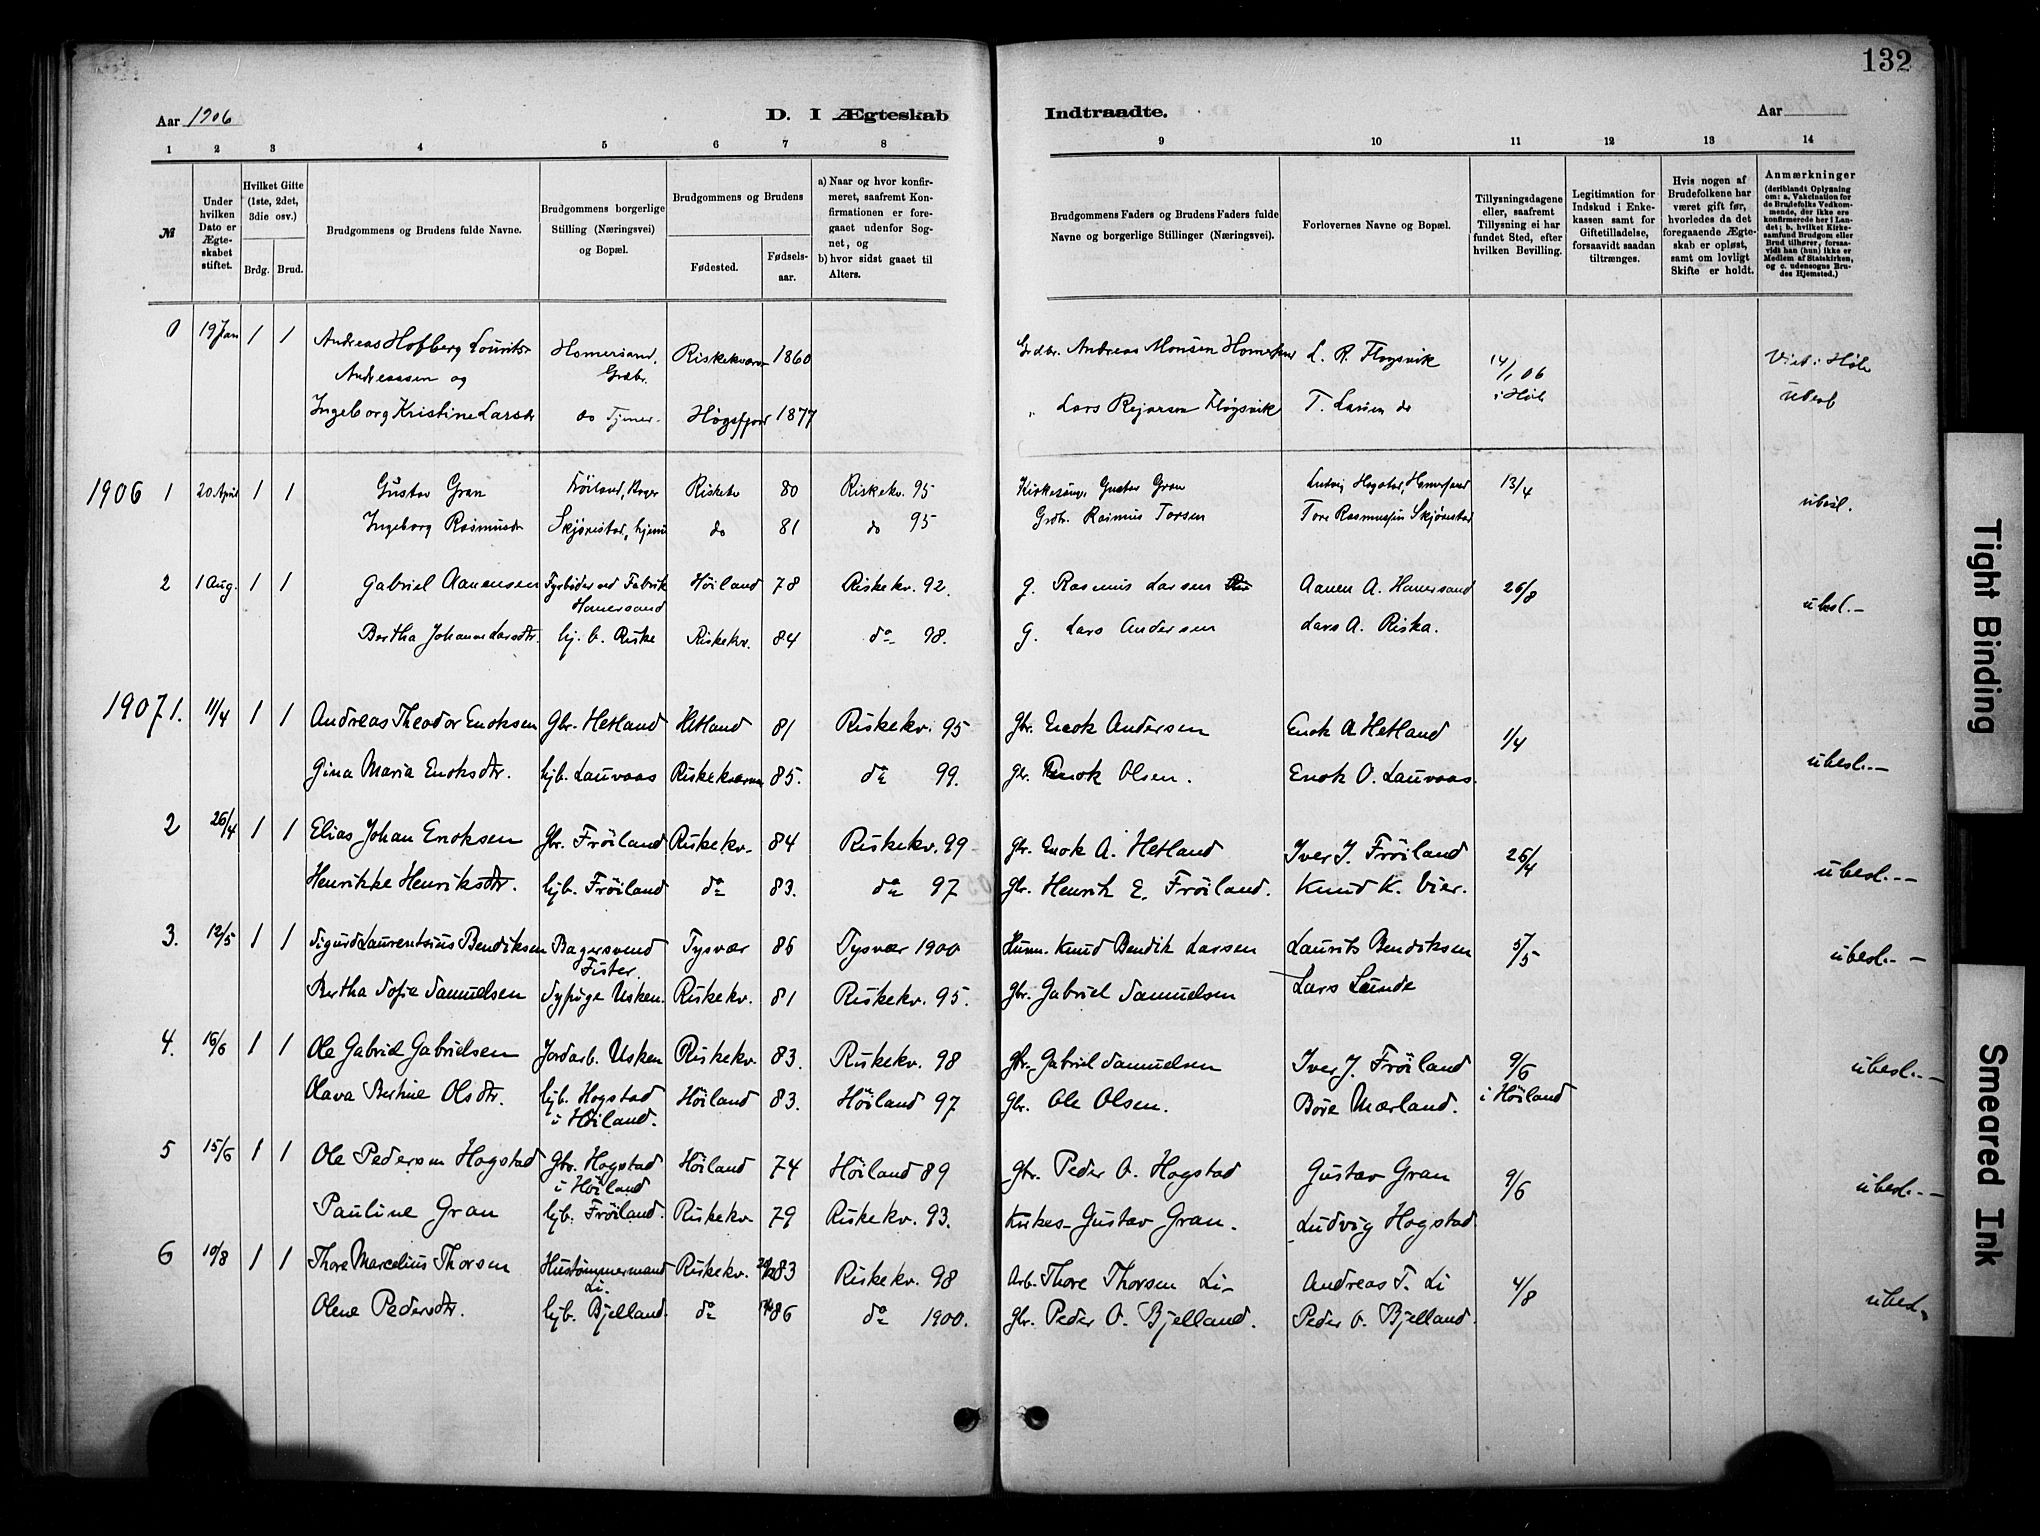 132
Aar 1906
D. I Ægteskab Indtraadte.
Aar
1 2 3 4 5 6 7 8 9 10 11 12 13 14
№
Under hvilken Dato er Ægteskabet stiftet.
Hvilket Gifte (1ste, 2det, 3die osv.)
Brdg. Brud.
Brudgommens og Brudens fulde Navne.
Brudgommens borgerlige Stilling (Næringsvei) og Bopæl.
Brudgommens og Brudens
Fødested. Fødselsaar.
a) Naar og hvor konfirmeret, saafremt Konfirmationen er foregaaet udenfor Sognet, og
b) hvor sidst gaaet til Alters.
Brudgommens Faders og Brudens Faders fulde Navne og borgerlige Stillinger (Næringsvei).
Forlovernes Navne og Bopæl.
Tillysningsdagene eller, saafremt Tillysning ei har fundet Sted, efter hvilken Bevilling.
Legitimation for Indskud i Enkekassen samt for Giftetilladelse, forsaavidt saadan tiltrænges.
Hvis nogen af Brudefolkene har været gift før, hvorledes da det foregaaende Ægteskab er opløst, samt om lovligt Skifte er holdt.
Anmærkninger
(deriblandt Oplysning om: a. Vakcination for de Brudefolks Vedkommende, der ikke ere konfirmerede her i Landet; b. hvilket Kirkesamfund Brudgom eller Brud tilhører, forsaavidt han (hun) ikke er Medlem af Statskirken, og c. udensogns Brudes Hjemsted.)
0 19 Jan 1 1 Andreas Hofberg Louritz Homersand, Riskekværn 1860 Andreas Monsen L. R. Fløysvik 14/1 06 Viet i Høle
Andreassen og Grdbr. i Høle
Ingeborg Kristine Larsdr do Tjener. Høgsfjord 1877 " Lars Rejersen Fløysvik T. Larsen do
1906 1 20 April 1 1 Gustav Gran Frøiland, Riskekv 80 Riskekv. 95 Gustav Gran Ludvig Hogstad, 13/4 ubesl.
Ingeborg Rasmusdr Skjørestad, do 81 do 95 Grdb. Rasmus Torsen Tore Rasmussen Skjørestad
2 1 Aug. 1 1 Gabriel Aanensen Fyrbøder ved Fabrik Høiland 78 Riskekv. 92. g. Rasmus Larsen Aanen A. Hanersand 26/8 ubesl.-
Hanersand
Bertha Johanne Larsdtr. hj. b. Riske Riskekv. 84 do 98. g. Lars Andersen Lars A. Riska.
1907 1. 11/4 1 1 Andreas Theodor Enoksen Gbr. Hetland Hetland 81 Riskekv. 95 gbr. Enok Andersen Enok A Hetland 1/4 ubesl.-
Gina Maria Enoksdtr. hjb. Lauvaas Riskekværn 85. do 99. gbr. Enok Olsen. Enok O. Lauvaas.
2 26/4 1 1 Elias Johan Enoksen Gbr. Frøiland Riskekv. 84 Riskekv. 99 gbr. Enok A. Hetland Iver J. Frøiland 26/4 ubesl.-
Henrikke Henriksdtr. hjb. Frøiland do 83. do 97 gbr. Henrik E. Frøiland. Knud K. Vier.
3. 12/5 1 1 Sigurd Laurentsius Bendiksen Bagersvend Tysvær 86 Tysvær 1900 Husm. Knud Bendik Larsen Laurits Bendiksen 5/5 ubesl.-
Fister.
Bertha Sofie Samuelsen Sypige Usken. Riskekv. 81 Riskekv. 95. gbr. Gabriel Samuelsen Lars Lunde
4. 16/6 1 1 Ole Gabriel Gabrielsen Jordarb. Usken Riskekv. 83. Riskekv. 98 gbr. Gabriel Samuelsen Iver J. Frøiland 9/6 ubesl.-
Olava Bertine Olsdtr. hjb. Hogstad Høiland 83. Høiland 97 gbr. Ole Olsen. Børe Mærland. i Høiland
i Høiland.
5 15/6 1 1 Ole Pedersen Hogstad Gbr. Hogstad Høiland 74 Høiland 89 gbr. Peder O. Hogstad Gustav Gran 9/6 ubesl.-
i Høiland
Pauline Gran hjb. Frøiland. Riskekv 79 Riskekv. 93. Kirkes. Gustav Gran. Ludvig Hogstad
6 10/8 1 1 Thore Marcelius Thorsen Hustømmermand Riskekv. 83 Riskekv. 98 Arb. Thore Thorsen Li- Andreas T. Li 4/8 ubesl.
Li.
Olene Pedersdtr. hjb. Bjelland. do 86 do 1900. gbr. Peder O. Bjelland. Peder O. Bjelland.
Tight Binding
Smeared Ink